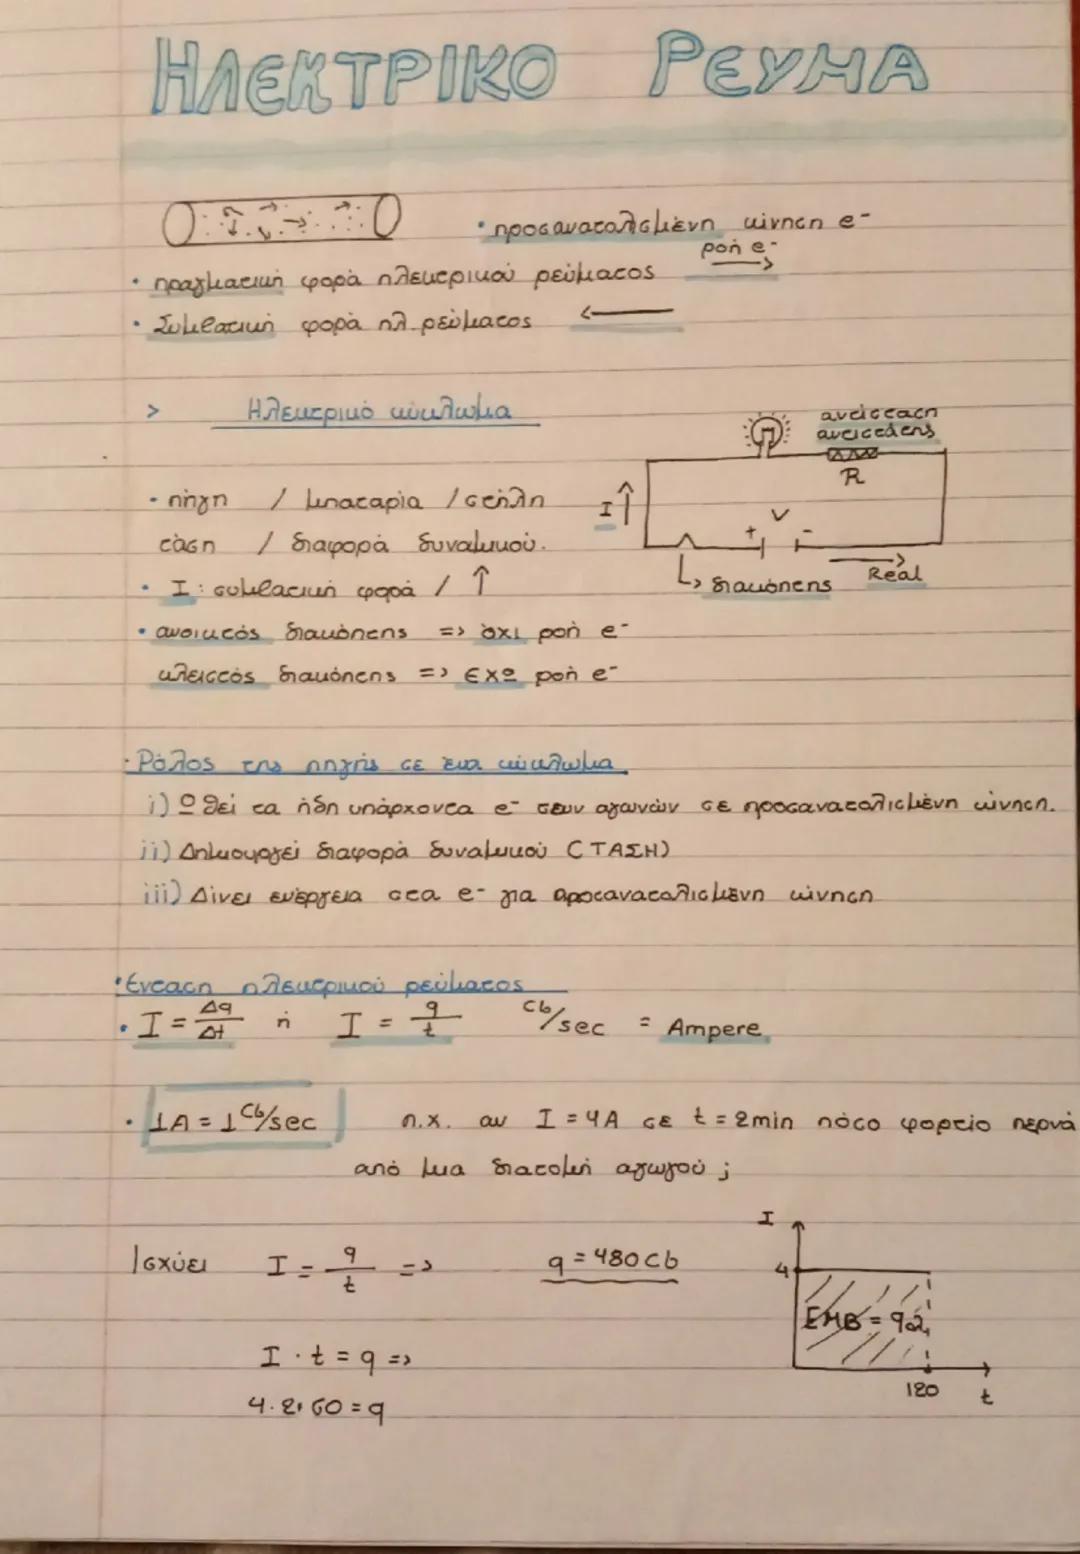 ΗΛΕΚΤΡΙΚΟ ΡΕΥΜΑ
• προσανατολισμένη κίνηση e-
ροή e-
• πραγματική φορά ηλεκτρικού ρεύματος
• Συμβατική φορά ηλ. ρεύματος
> Ηλεκτρικό κύκλωμα
αντίσταση
αντιστάτης
R
• πηγή / μπαταρία / στήλη
I
V
+ -
τάση / διαφορά δυναμικού.
διακόπτης
Real
• I : συμβατική φορά / ↑
• ανοικτός διακόπτης => όχι ροή e-
κλειστός διακόπτης => έχω ροή e-
• Ρόλος της πηγής σε ένα κύκλωμα
i) Ωθεί τα ήδη υπάρχοντα e- των αγωγών σε προσανατολισμένη κίνηση.
ii) Δημιουργεί διαφορά δυναμικού (ΤΑΣΗ)
iii) Δίνει ενέργεια στα e- για προσανατολισμένη κίνηση
• Ένταση ηλεκτρικού ρεύματος
• I = Δq/Δt ή I = q/t Cb/sec = Ampere
• 1A = 1 Cb/sec π.χ. αν I = 4A σε t = 2min πόσο φορτίο περνά
από μια διατομή αγωγού ;
Ισχύει I = q/t => q = 480 Cb
I
4
ΕΜΒ = q
I · t = q =>
120 t
4 · 2 · 60 = q